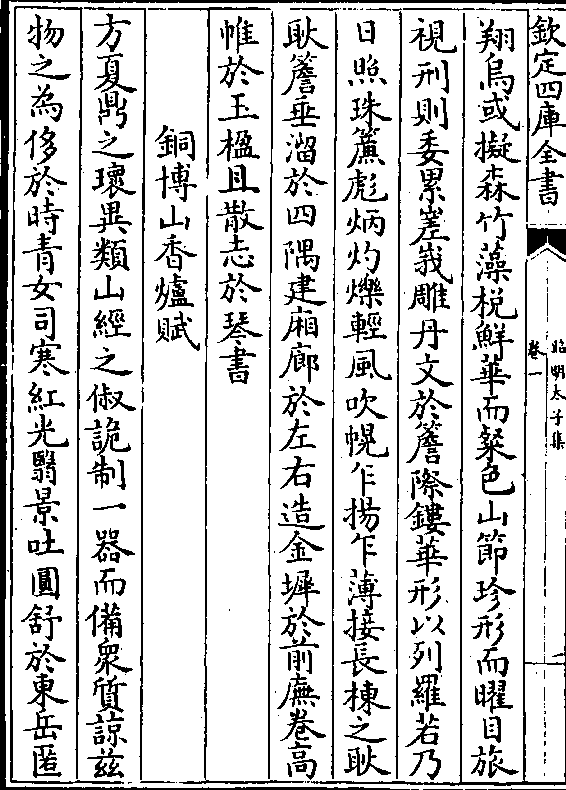 欽定四庫全書
昭明太子集
卷一
翔烏或擬森竹藻梲鮮華而粲色山節珍形而曜目旅
視刑則委累嵳峩雕丹文於簷際鏤華形以列羅若乃
日照珠簾彪炳灼爍輕風吹幌乍揚乍薄接長棟之耿
耿簷垂溜於四隅建廂廊於左右造金墀於前廡卷高
帷於玉楹且散志於琴書
銅博山香爐賦
方夏鼎之瓌異類山經之俶詭制一器而備衆質諒兹
物之為侈於時青女司寒紅光翳景吐圓舒於東岳匿